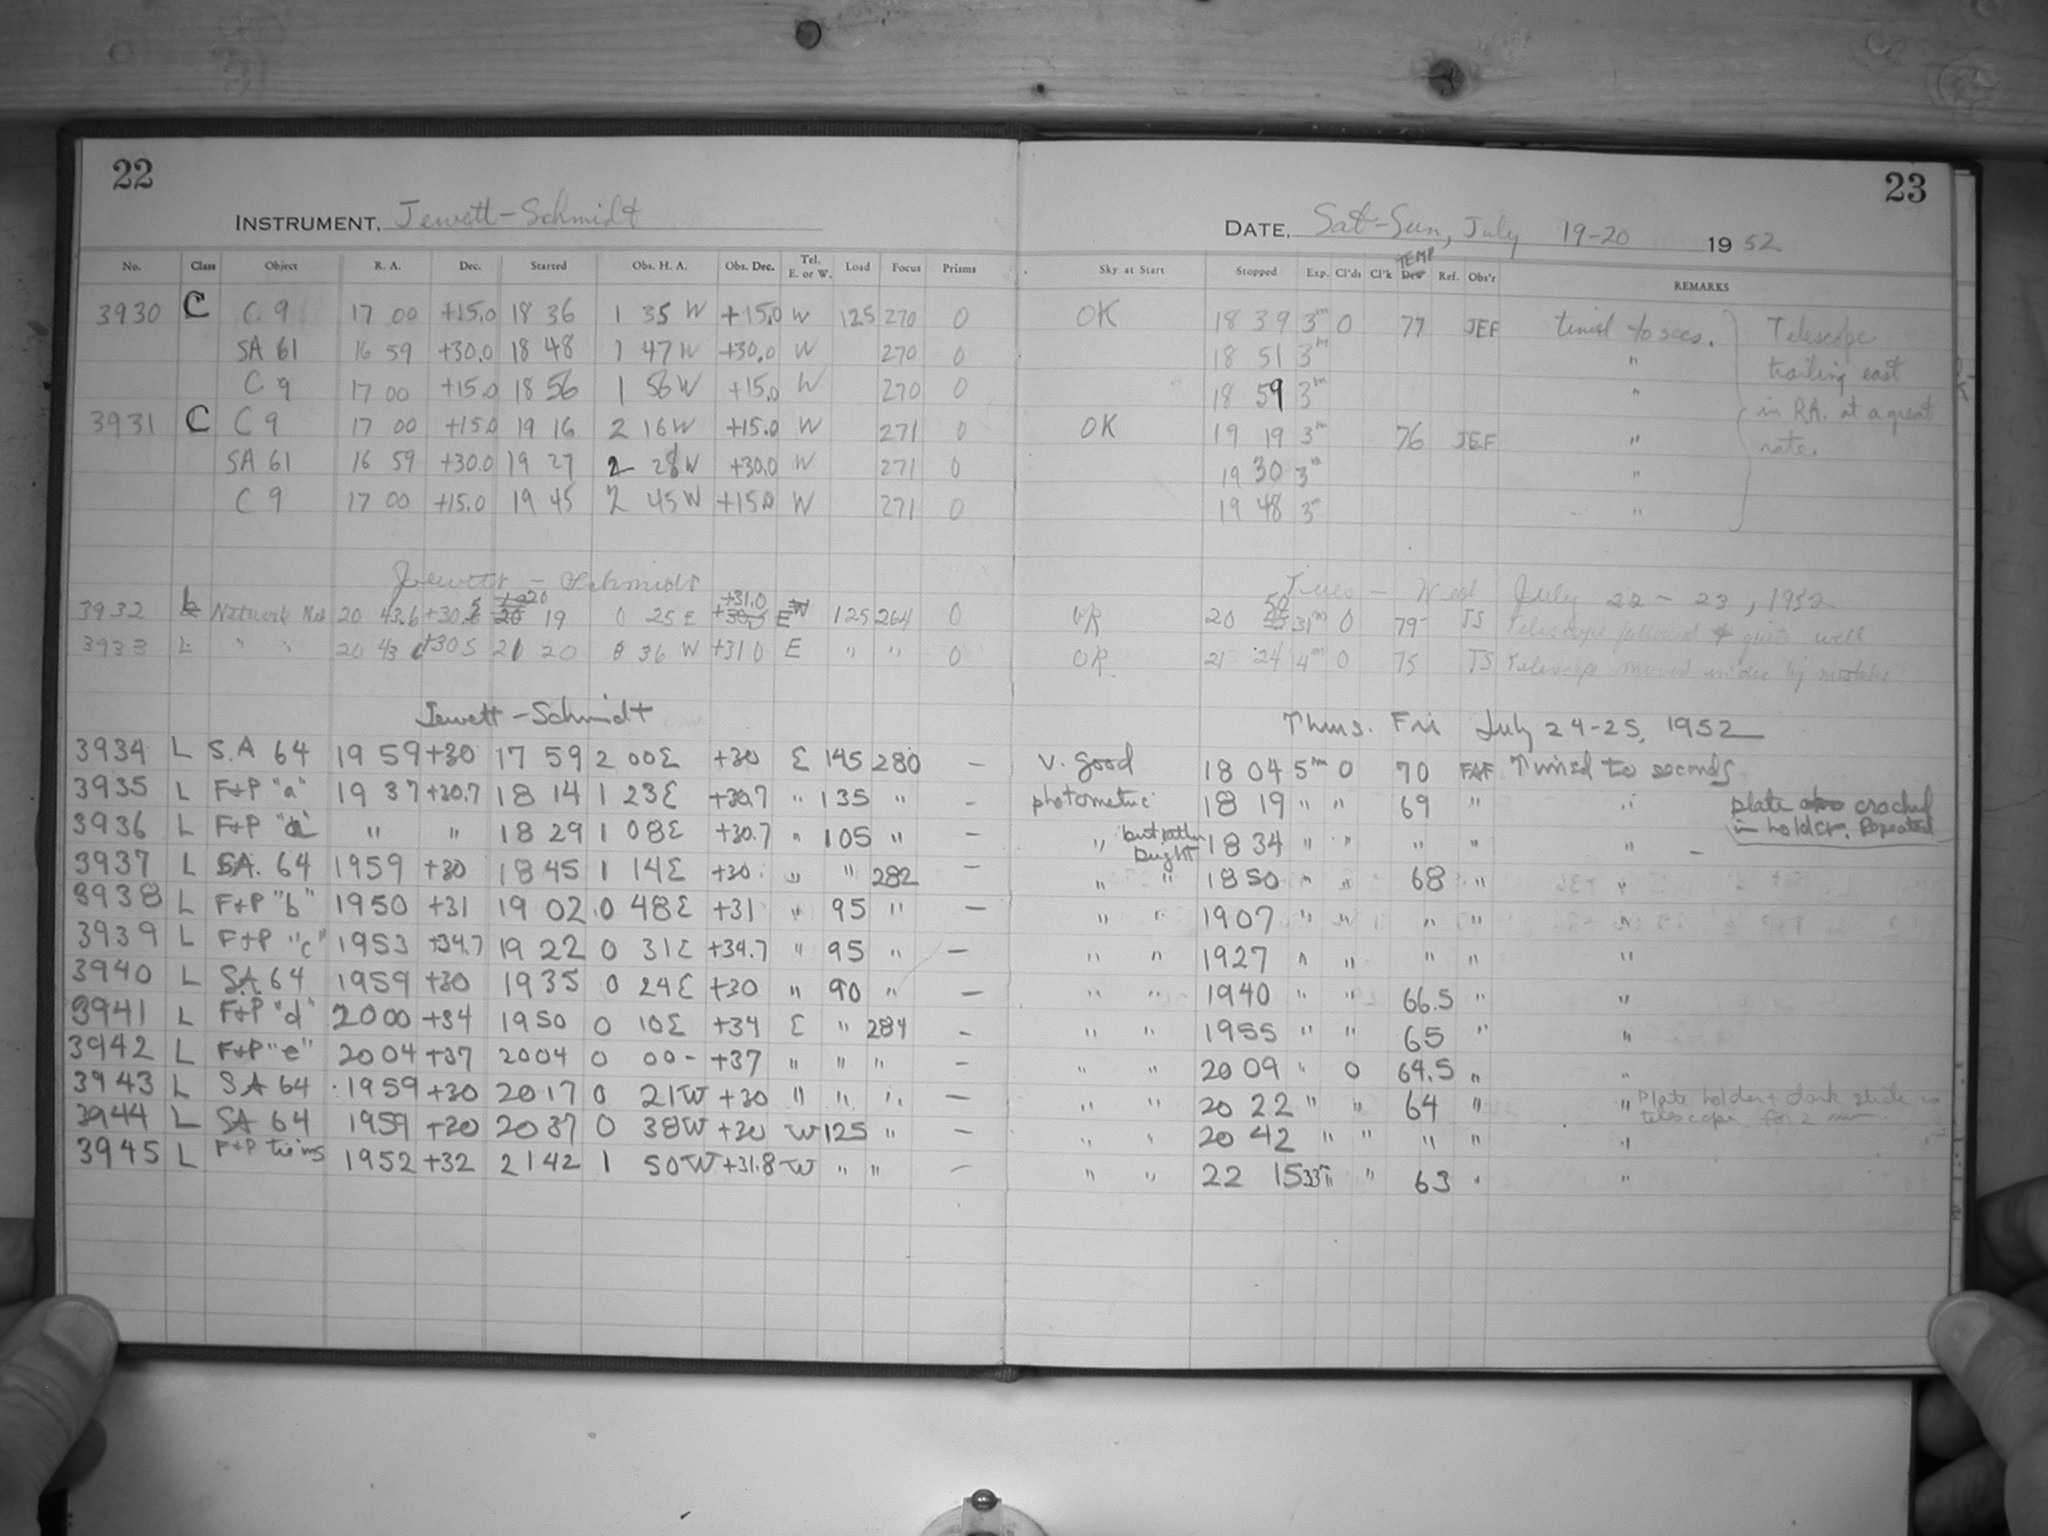 22
23
INSTRUMENT, Jewett-Schmidt
DATE, Sat-Sun, July 19-20 1952
No. Class Object R. A. Dec. Started Obs. H. A. Obs. Dec. Tel. E. or W. Load Focus Prisms Sky at Start Stopped Exp. Cl'ds Cl'k Dew TEMP Ref. Obs'r REMARKS
3930 C C 9 17 00 +15.0 18 36 1 35 W +15.0 W 125 270 0 OK 18 39 3m 0 77 JEF timed to secs. Telescope
SA 61 16 59 +30.0 18 48 1 47 W +30.0 W 270 0 18 51 3m " trailing east
C 9 17 00 +15.0 18 56 1 56 W +15.0 W 270 0 18 59 3m " in RA. at a great
3931 C C 9 17 00 +15.0 19 16 2 16 W +15.0 W 271 0 OK 19 19 3m 76 JEF " rate.
SA 61 16 59 +30.0 19 27 2 28 W +30.0 W 271 0 19 30 3m "
C 9 17 00 +15.0 19 45 2 45 W +15.0 W 271 0 19 48 3m "
Jewett - Schmidt Tues - Wed July 22 - 23, 1952
3932 L Network Neb 20 43.6 +30.5 20 19 0 25 E +31.0 E 125 264 0 OK 20 50 31m 0 79 JS Telescope followed quite well
3933 L " " 20 43 +30 5 21 20 0 36 W +31 0 E " " 0 OK 21 24 4m 0 75 JS Telescope moved in dec by mistake
Jewett - Schmidt Thurs. Fri July 24-25, 1952
3934 L S.A 64 19 59 +30 17 59 2 00 E +30 E 145 280 - v. good 18 04 5m 0 70 FAF Timed to seconds
3935 L F+P "a" 19 37 +30.7 18 14 1 23 E +30.7 " 135 " - photometric 18 19 " " 69 " " plate cracked in holder. Repeated
3936 L F+P "a" " " 18 29 1 08 E +30.7 " 105 " - " but rather bright 18 34 " " " " "
3937 L SA. 64 1959 +30 18 45 1 14 E +30 " " 282 - " " 1850 " " 68 " "
3938 L F+P "b" 1950 +31 19 02 0 48 E +31 " 95 " - " " 1907 " " " " "
3939 L F+P "c" 1953 +34.7 19 22 0 31 E +34.7 " 95 " - " " 1927 " " " " "
3940 L S.A. 64 1959 +30 1935 0 24 E +30 " 90 " - " " 1940 " " 66.5 " "
3941 L F+P "d" 2000 +34 1950 0 10 E +34 E " 284 - " " 1955 " " 65 " "
3942 L F+P "e" 2004 +37 2004 0 00 - +37 " " " - " " 20 09 " 0 64.5 " "
3943 L SA 64 1959 +30 2017 0 21 W +30 " " " - " " 20 22 " " 64 " " Plate holder + dark slide in telescope for 2
3944 L SA 64 1959 +30 2037 0 38 W +30 W 125 " - " " 20 42 " " " " "
3945 L F+P 1952 +32 2142 1 50 W +31.8 W " " - " " 22 15 33m " 63 " "